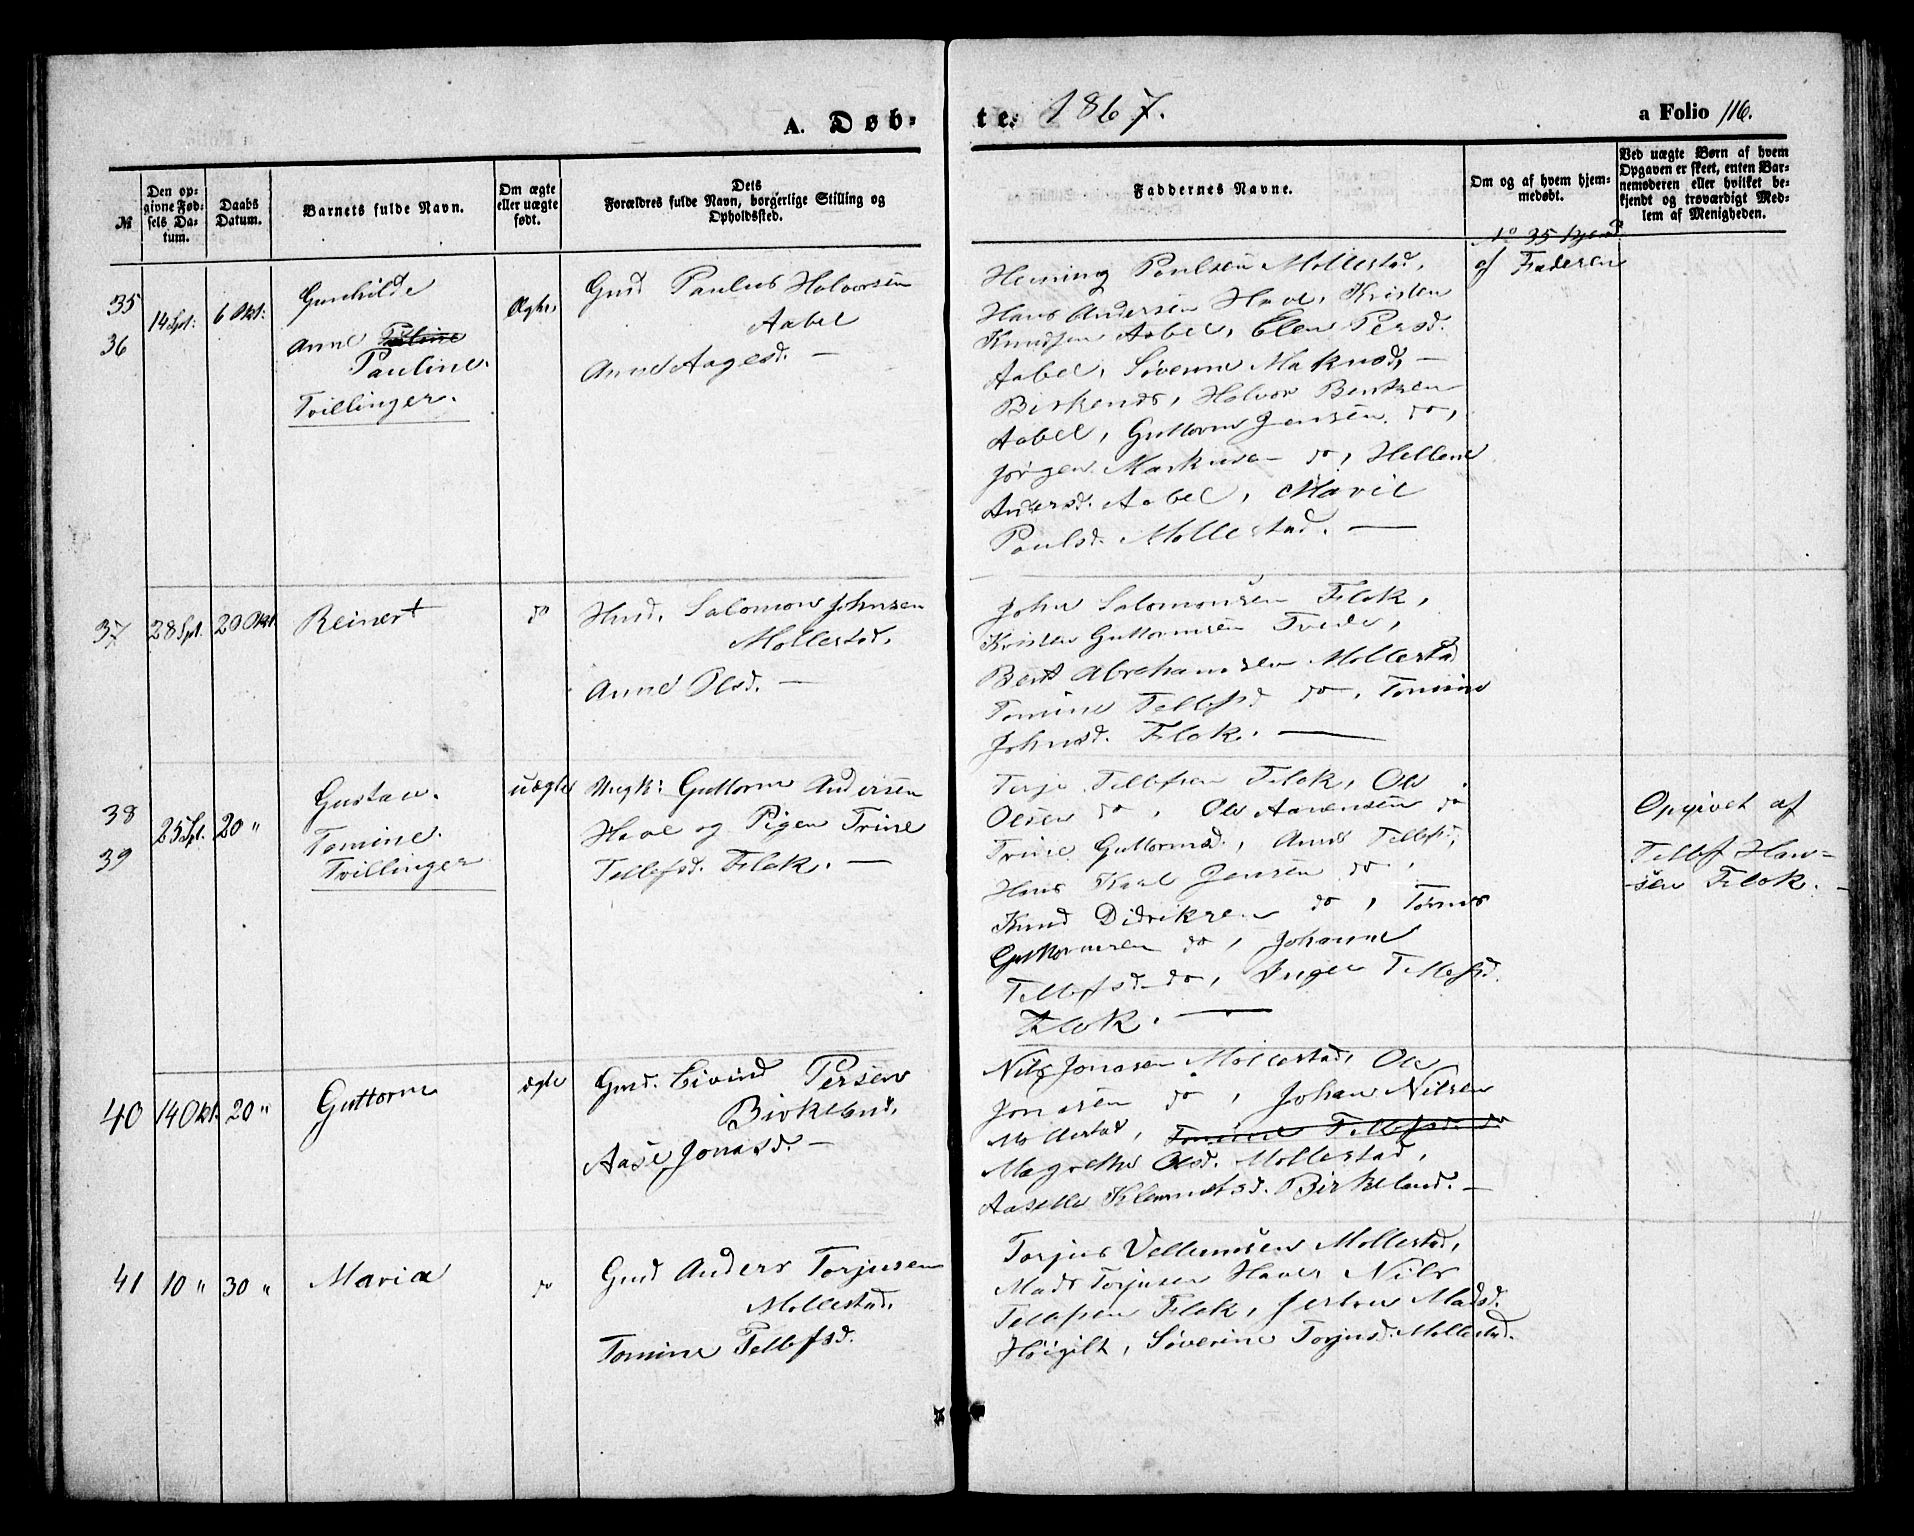 A. Døb-
te. 1867.
a Folio 116.
№
Den op-
givne Fød-
sels Da-
tum.
Daabs
Datum.
Barnets fulde Navn.
Om ægte
eller uægte
født.
Dets
Forældres fulde Navn, borgerlige Stilling og
Opholdssted.
Faddernes Navne.
Om og af hvem hjem-
medøbt.
Ved uægte Børn af hvem
Opgaven er skeet, enten Bar-
nemoderen eller hvilket be-
kjendt og troværdigt Med-
lem af Menigheden.
35
36
14 Spt:
6 Okt:
Gunhilde
Anne
Pauline.
Tvillinger.
Ægte,
Gmd Paulus Holvorsen
Aabel
Anne Aagesd. —
Heming Poulsen Mollestad,
Hans Andersen Have, Kristen
Knudsen Aabel, Elen Persd.
Aabel, Søverine Makusd, —
Birkends, Holvor Bentsen
Aabel, Guttorm Jensen do,
Jørgen Markuse - do, Hellene
Andersd. Aabel, Maril
Poulsd. Mollestad. —
No 35 hjemd
af Faderen
37
28 Spt.
20 Okt
Reinert
do
Husd. Salomon Johnsen
Mollestad,
Anne Olsd. —
John Salomonsen Flok,
Kristen Guttormsen Tveide,
Bent Abrahamsen Mollestad
Tomine Tellefsd do, Tomine
Johnsd. Flok. —
38
39
25 Spt.
20 "
Gustav.
Tomine.
Tvillinger
uægte
Ungk: Guttorm Andersen
Have og Pigen Trine
Tellefsd. Flok. —
Terje Tellefsen Flok, Ole
Olsen do, Ole Aanensen do
Trine Guttormsd., Anne Tellefsd,
Hans Karl Jensen do,
Knud Didriksen do, Tomas
Guttormsen do, Johanne
Tellefsd do, Inger Tellefsd.
Flok. —
Opgivet af
Tellef Han-
sen Flok. —
40
14 Okt.
20 "
Guttorm
ægte
Gmd. Eivind Persen
Birkeland,
Aase Jonasd. —
Nils Jonasen Mollestad, Ole
Jonasen do, Johan Nilsen
Mollestad, Tomine Tellefsd. do
Magrethe Olsd. Mollestad,
Aaselle Klemmetsd. Birkeland. —
41
10 "
30 "
Maria
do
Gmd Anders Torjusen
Mollestad,
Tomine Tellefsd.
Torjus Vellumsen Mollestad,
Mads Torjusen Haver Nils
Tellefsen Flok, Madsd.
Høigilt, Søverine Torjusd. Mollestad.